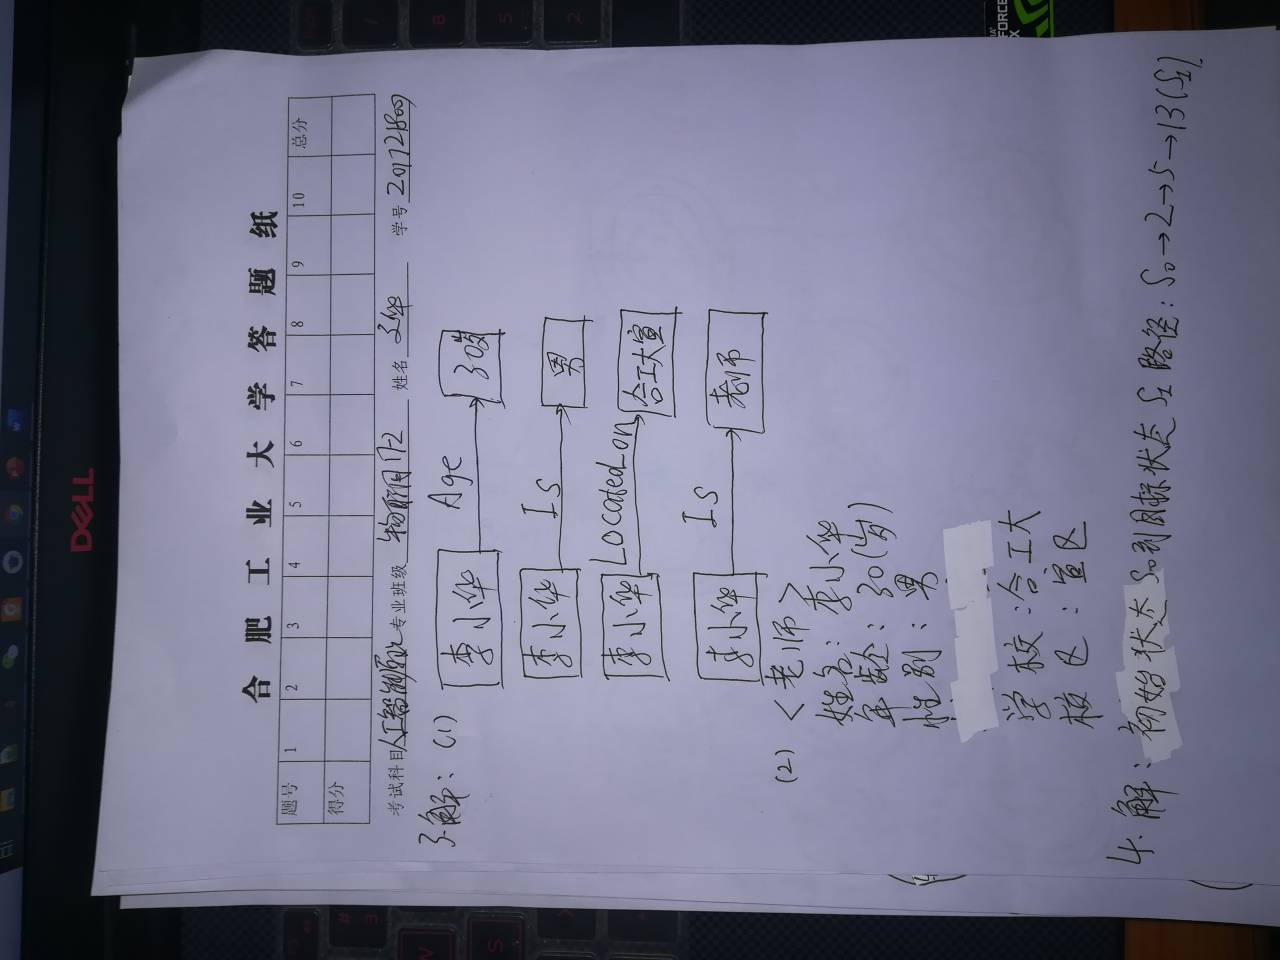 DELL
合肥工业大学答题纸
题号 1 2 3 4 5 6 7 8 9 10 总分
得分
考试科目 人工智能原理 专业班级 物联网17-2 姓名 学号
3.解：(1) 李小华 Age 30岁
李小华 Is 男
李小华 Located_on 合工大宣
李小华 Is 老师
(2) <老师>
姓名：李小华
年龄：30(岁)
性别：男
学校：合工大
校区：宣区
4.解：初始状态S₀到目标状态S₁路径：S₀→2→5→13(S₁).